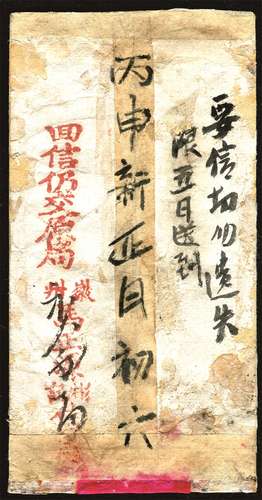 要信切勿遺失
限五日送到
丙申新正月初六
回信仍交原局